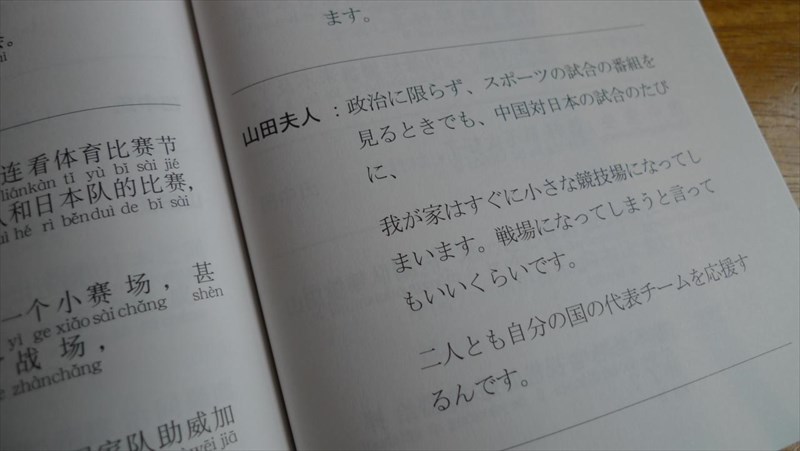 连看体育比赛节
liánkàn tǐ yù bǐ sài jié
和日本队的比赛，
hé rì běnduì de bǐ sài
一个小赛场，甚
yí ge xiǎo sài chǎng shèn
战场，
zhànchǎng
队助威加
wēi jiā
ます。
山田夫人：政治に限らず、スポーツの試合の番組を
見るときでも、中国対日本の試合のたび
に、
我が家はすぐに小さな競技場になってし
まいます。戦場になってしまうと言って
もいいくらいです。
二人とも自分の国の代表チームを応援す
るんです。